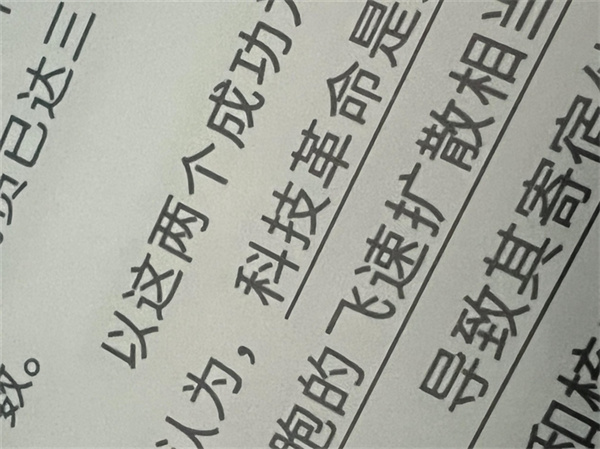 已达三
数。
以这两个成功
认为，科技革命是
胞的飞速扩散相当
导致其寄宿
和核